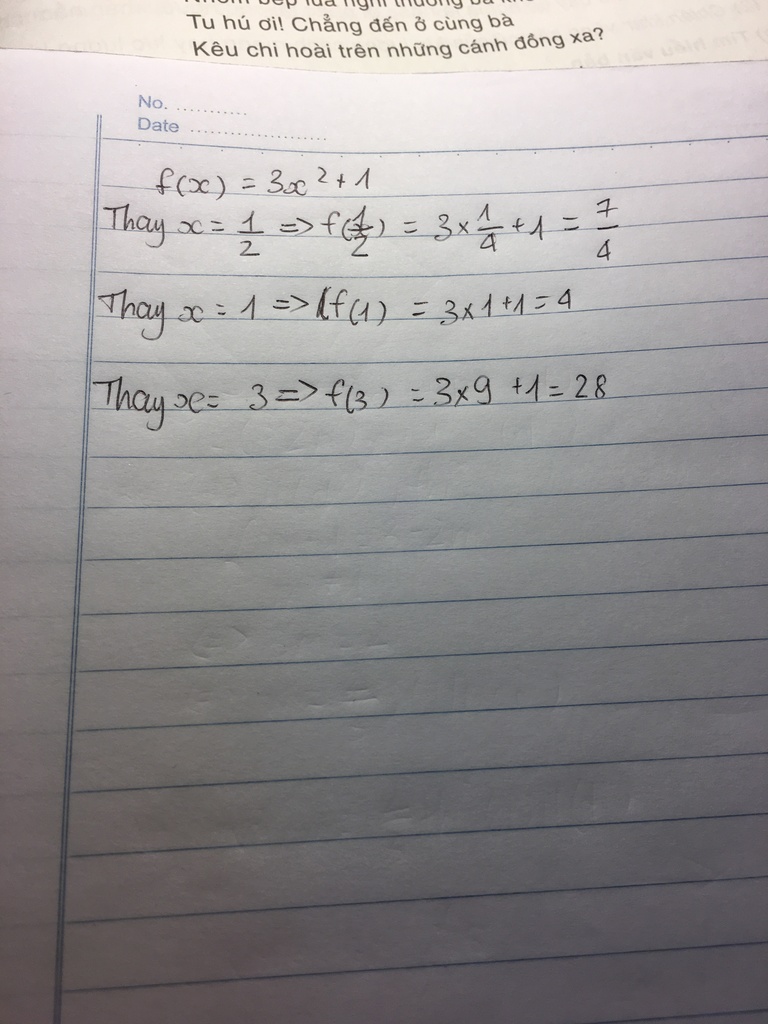 Tu hú ơi! Chẳng đến ở cùng bà
Kêu chi hoài trên những cánh đồng xa?
No. ...........
Date .....................
f(x) = 3x² + 1
Thay x = 1/2 => f(1/2) = 3 × 1/4 + 1 = 7/4
Thay x = 1 => f(1) = 3 × 1 + 1 = 4
Thay x = 3 => f(3) = 3 × 9 + 1 = 28